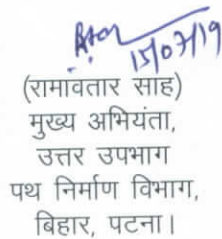 15/07/19
(रामावतार साह)
मुख्य अभियंता,
उत्तर उपभाग
पथ निर्माण विभाग,
बिहार, पटना।